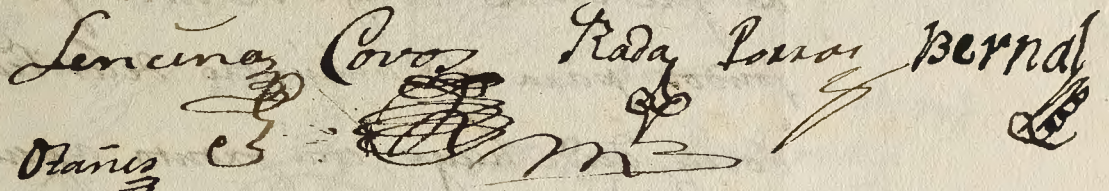 Lencinas Covos Rada Porras Bernal
Otañes